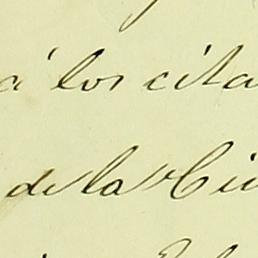 á los cita
de la Ciu